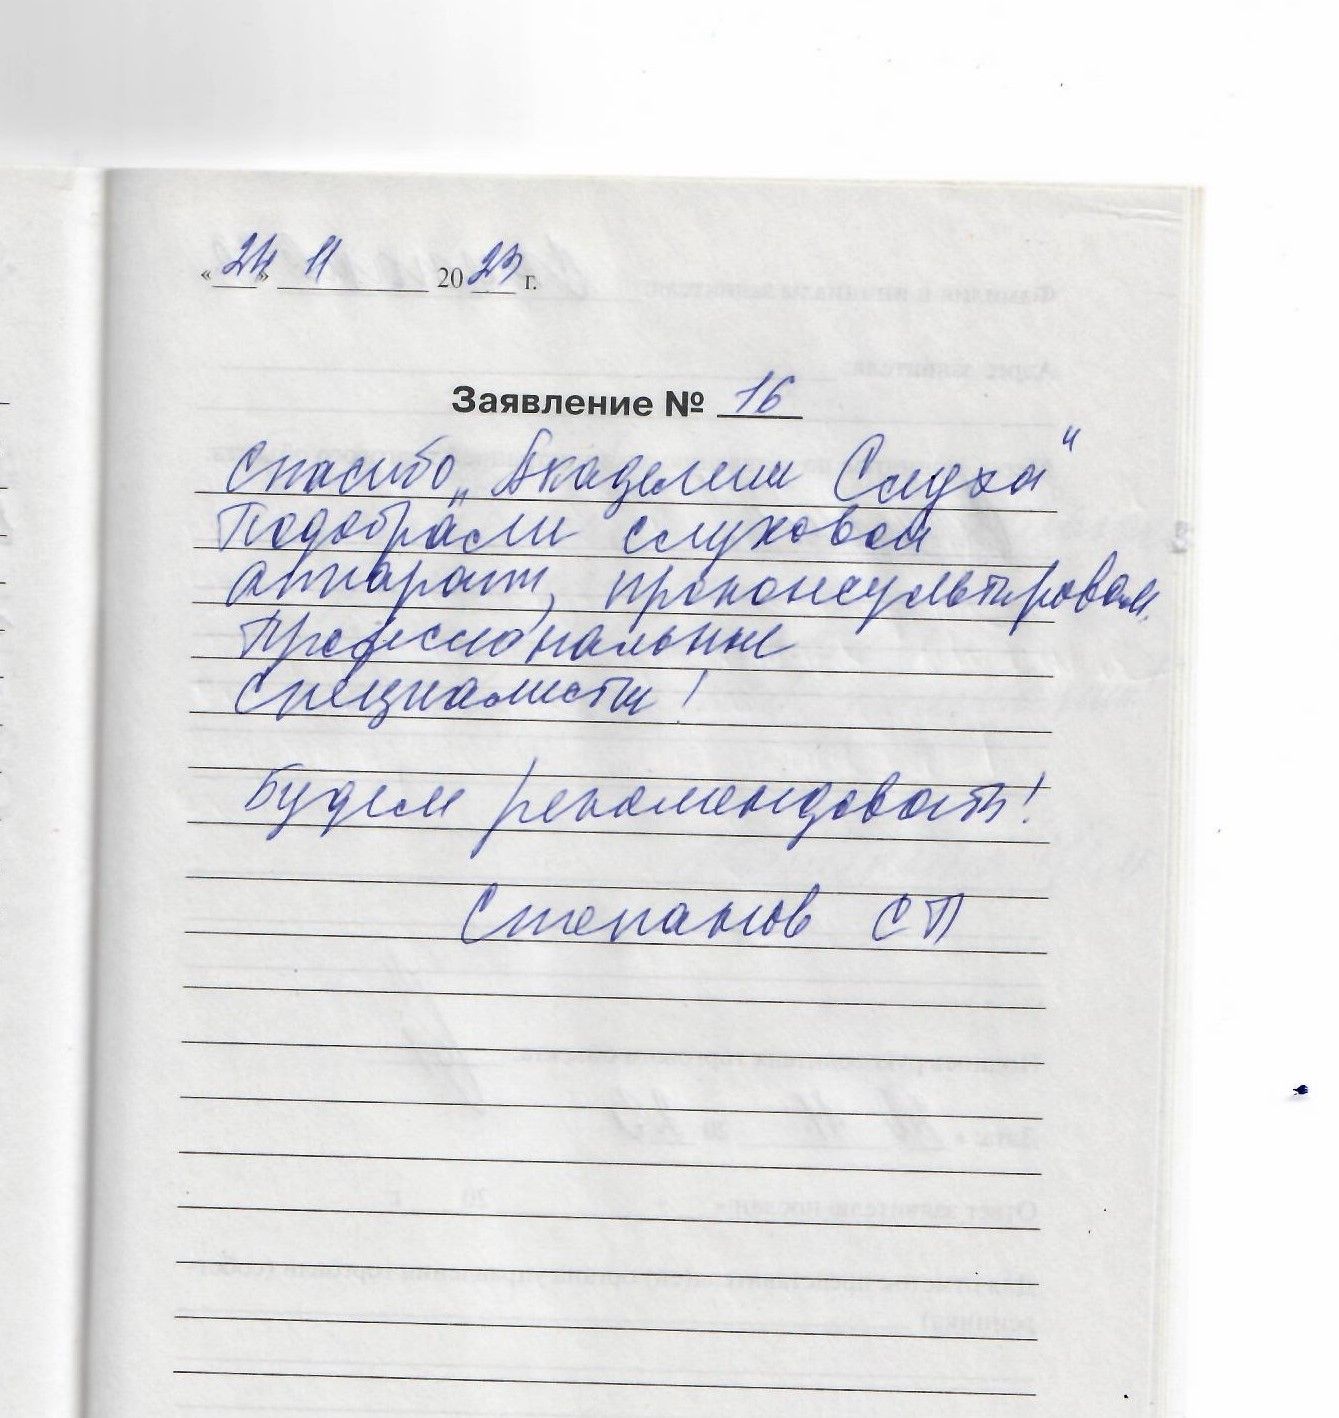 «24» 11 2023 г.
Заявление № 16
Спасибо „Академии Слуха"
Подобрали слуховой
аппарат, проконсультировали.
Профессиональные
специалисты!
Будем рекомендовать!
Степанов СП